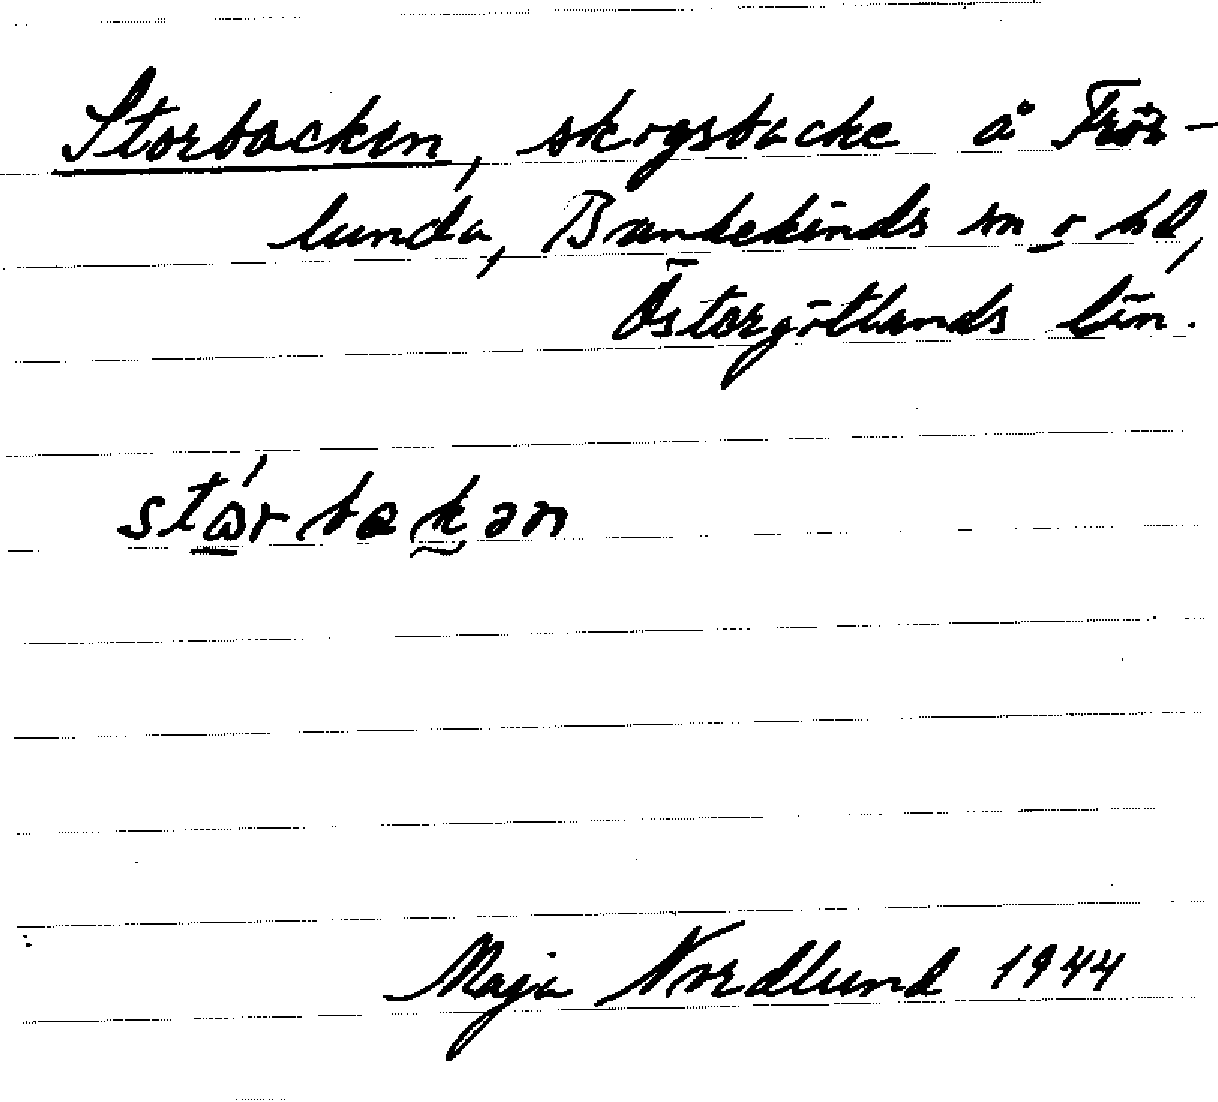 Storbacken, skogsbacke å Frör-
lunda, Bankekinds sn o hd,
Östergötlands län.
stơrbakən
Maja Nordlund 1944